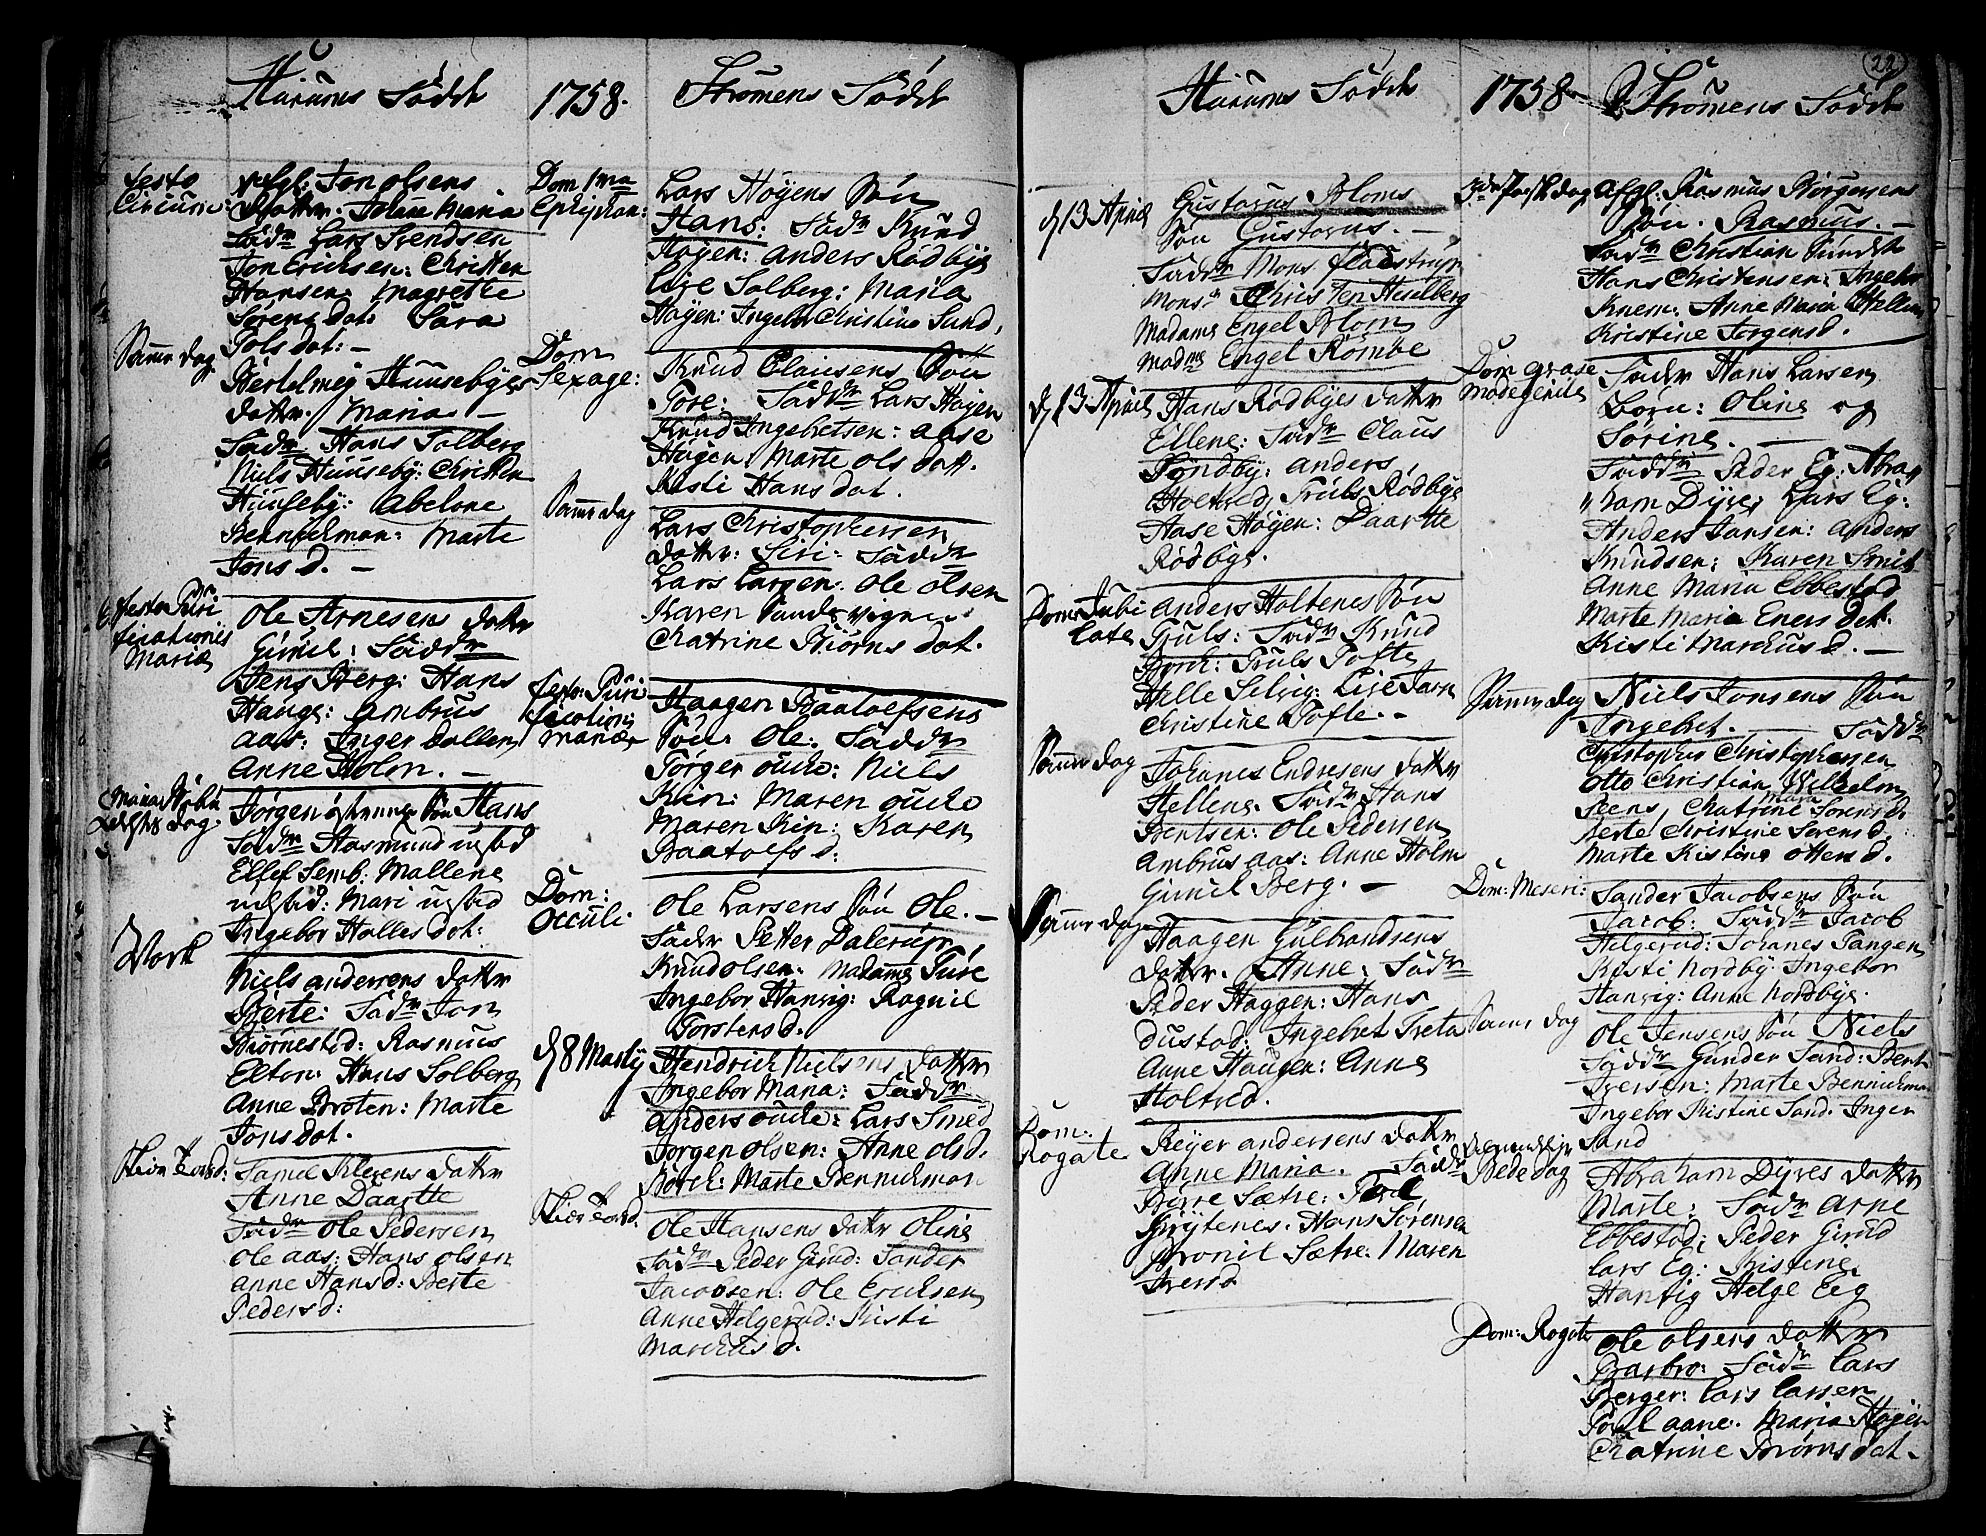 Hurums Födde
1758.
Strömens Födde
Festo
Circumc:
Afgl: Jon olsens
Datter. Johane Maria
Fadr Lars Svendsen
Jon Erichsen: Christen
Hansen Magrette
Sørens dat: Sara
Pols dat:
Samme dag
Bertelmej Huusebyes
datter. Maria. –
Fadr Hans Solberg
Niels Huuseby: Christen
Huuseby: Abelone
Bennichman: Marte
Jons d. –
Festo Puri
ficationis
Mariæ
Ole Arnesens datter
Gunil: Faddr
Jens Berg: Hans
Hauge: Ambrus
aas: Inger dallen
Anne Holm. –
Maria
dag.
Jørgen Søn Hans
Fadr Aasmund
Ellef Semb: Mallene
Mari
Ingebor Halles dot:
Niels andersens datter
Berte: Fadr Jon
Biørnestad: Rasmus
Elton: Hans Solberg
Anne Broten: Marte
Jonsdot.
Skier Torsd:
datter
Anne Daartte
Fadr Ole Pedersen
Ole aas: Hans olsen
anne Hansd: Berte
Pedersd:
Dom 1ma
Ephiphan:
Lars Høyens Søn
Hans: Fadr Knud
Høyen: anders Rødbye
Lise Solberg: Maria
Høyen: Ingebor Christine Sand,
Dom
Sexage:
Knud Clausens Søn
Tore: Faddr Lars Høyen
Knud Ingebretsen: aase
Høyen: Marte ols datt.
Kisti Hans dat.
Samme dag
Lars Christophersen
datter: Siri: Faddr
Lars Largen: Ole olsen
Karen Sand
Chatrine Biørns dat.
Festo: Puri
ficationis
Mariæ
Haagen Baatolfsens
Søn Ole: Faddr
Törger ouche: Niels
Kin: Maren ouche
Maren Kin: Karen
Baatolfs d:
Dom:
Occuli
Ole Larsens Søn Ole. –
Fadr Petter Dalerup,
Knud olsen: Madame Ture
Ingebor Hanvig: Ragnil
Torstens d.
d 8 Martij
Hendrich Nielsens datter
Ingebor Maria: Faddr
Anders ouche: Lars Smed
Jørgen olsen: Anne olsd.
Børch: Marte Bennichman
Skier Torsd.
Ole Hansens datter Oline
Fadr Peder Gund: Sander
Jacobsen: Ole Erichsen
Anne Helgerud: Kisti
Marchus d.
22
Hurums Födde
1758
Strömens Födde
d 13 April
Gustavus Bloms
Søn Gustavus. –
Faddr Mons.
Monsr Christen Heselberg
Madame Engel Blom
Madme Engel Rømbe
d 13 April
Hans Rödbyes datter
Ellene: Fadr Claus
Tøndby: anders
Holtved: Truls Rødbye
Aase Høyen: Daartte
Rödbye.
Dom: Jubi
late
Anders Holtenes Søn
Truls: Fadr Knud
Borch: Truls Tofte
Helle Selvig: Lise
Christine Tofte. –
Samme dag
Johanes Endresens datter
Hellene: Fadr Hans
Bentsen: Ole Pedersen
Ambrus aas: Anne Holm
Gunil Berg. –
Samme dag
Haagen Gulbrandsens
datter. Anne: Fadr
Peder Haggen: Hans
dustad: Ingebret Treta
Anne Haugen: Anne
Holtved.
Dom:
Rogate
Reyer andersens datter
Anne Maria. Fadr
Børre Sætre: Poul
Grytenes: Hans Sørensen
Gronil Sætre: Maren
Iversd
3die Paaske dag
Afgl: Rasmus Börgersens
Søn. Rasmus. –
Fadr Christian Sundt
Hans Christensen: Ingebor
Knem: Anne Maria Hellem
Kristine Jørgensd.
Dom Qvase
Modogenite
Fadr Hans Larsen
Børn: Oline og
Sørine. –
Faddr Peder Eg: Abra,,
,,ham Dyre: Lars Eg:
Anders Jansen: Anders
Knudsen: Karen Smit
Anne Maria Ebbestad
Marte Maria Eners Dat.
Kisti Marchus d. –
Samme dag
Niels Jonsens Søn
Ingebret. – Faddr
Christopher Christophersen
Otto Christian Wilhelm
Steens, Chatrine Maria Sørensd.
Berte Christine Sørensd.
Marte Kistine ottersd.
Dom: Meseri:
Sander Jacobsens Søn
Jacob: Fadr Jacob
Helgerud: Johanes Tangen
Kisti Nordby: Ingebor
Hanvig: Anne Nordbye.
Samme dag
Ole Jensens Søn Niels
Faddr Gunder Sand: Bent
Iversen: Marte Bennichman
Ingebor Kistine Sand. Inger
Sand
Bededag
Abraham Dyres datter
Marte: Fadr Arne
Ebbestad: Peder Grud
Lars Eg: Kistine
Hanvig Helge Eeg
Dom: Rogate
Ole olsens datter
Barbro: Fadr Lars
Berger: Lars Larsen
Poul aane. Maria Høyen
Chatrine Biørnsdat.